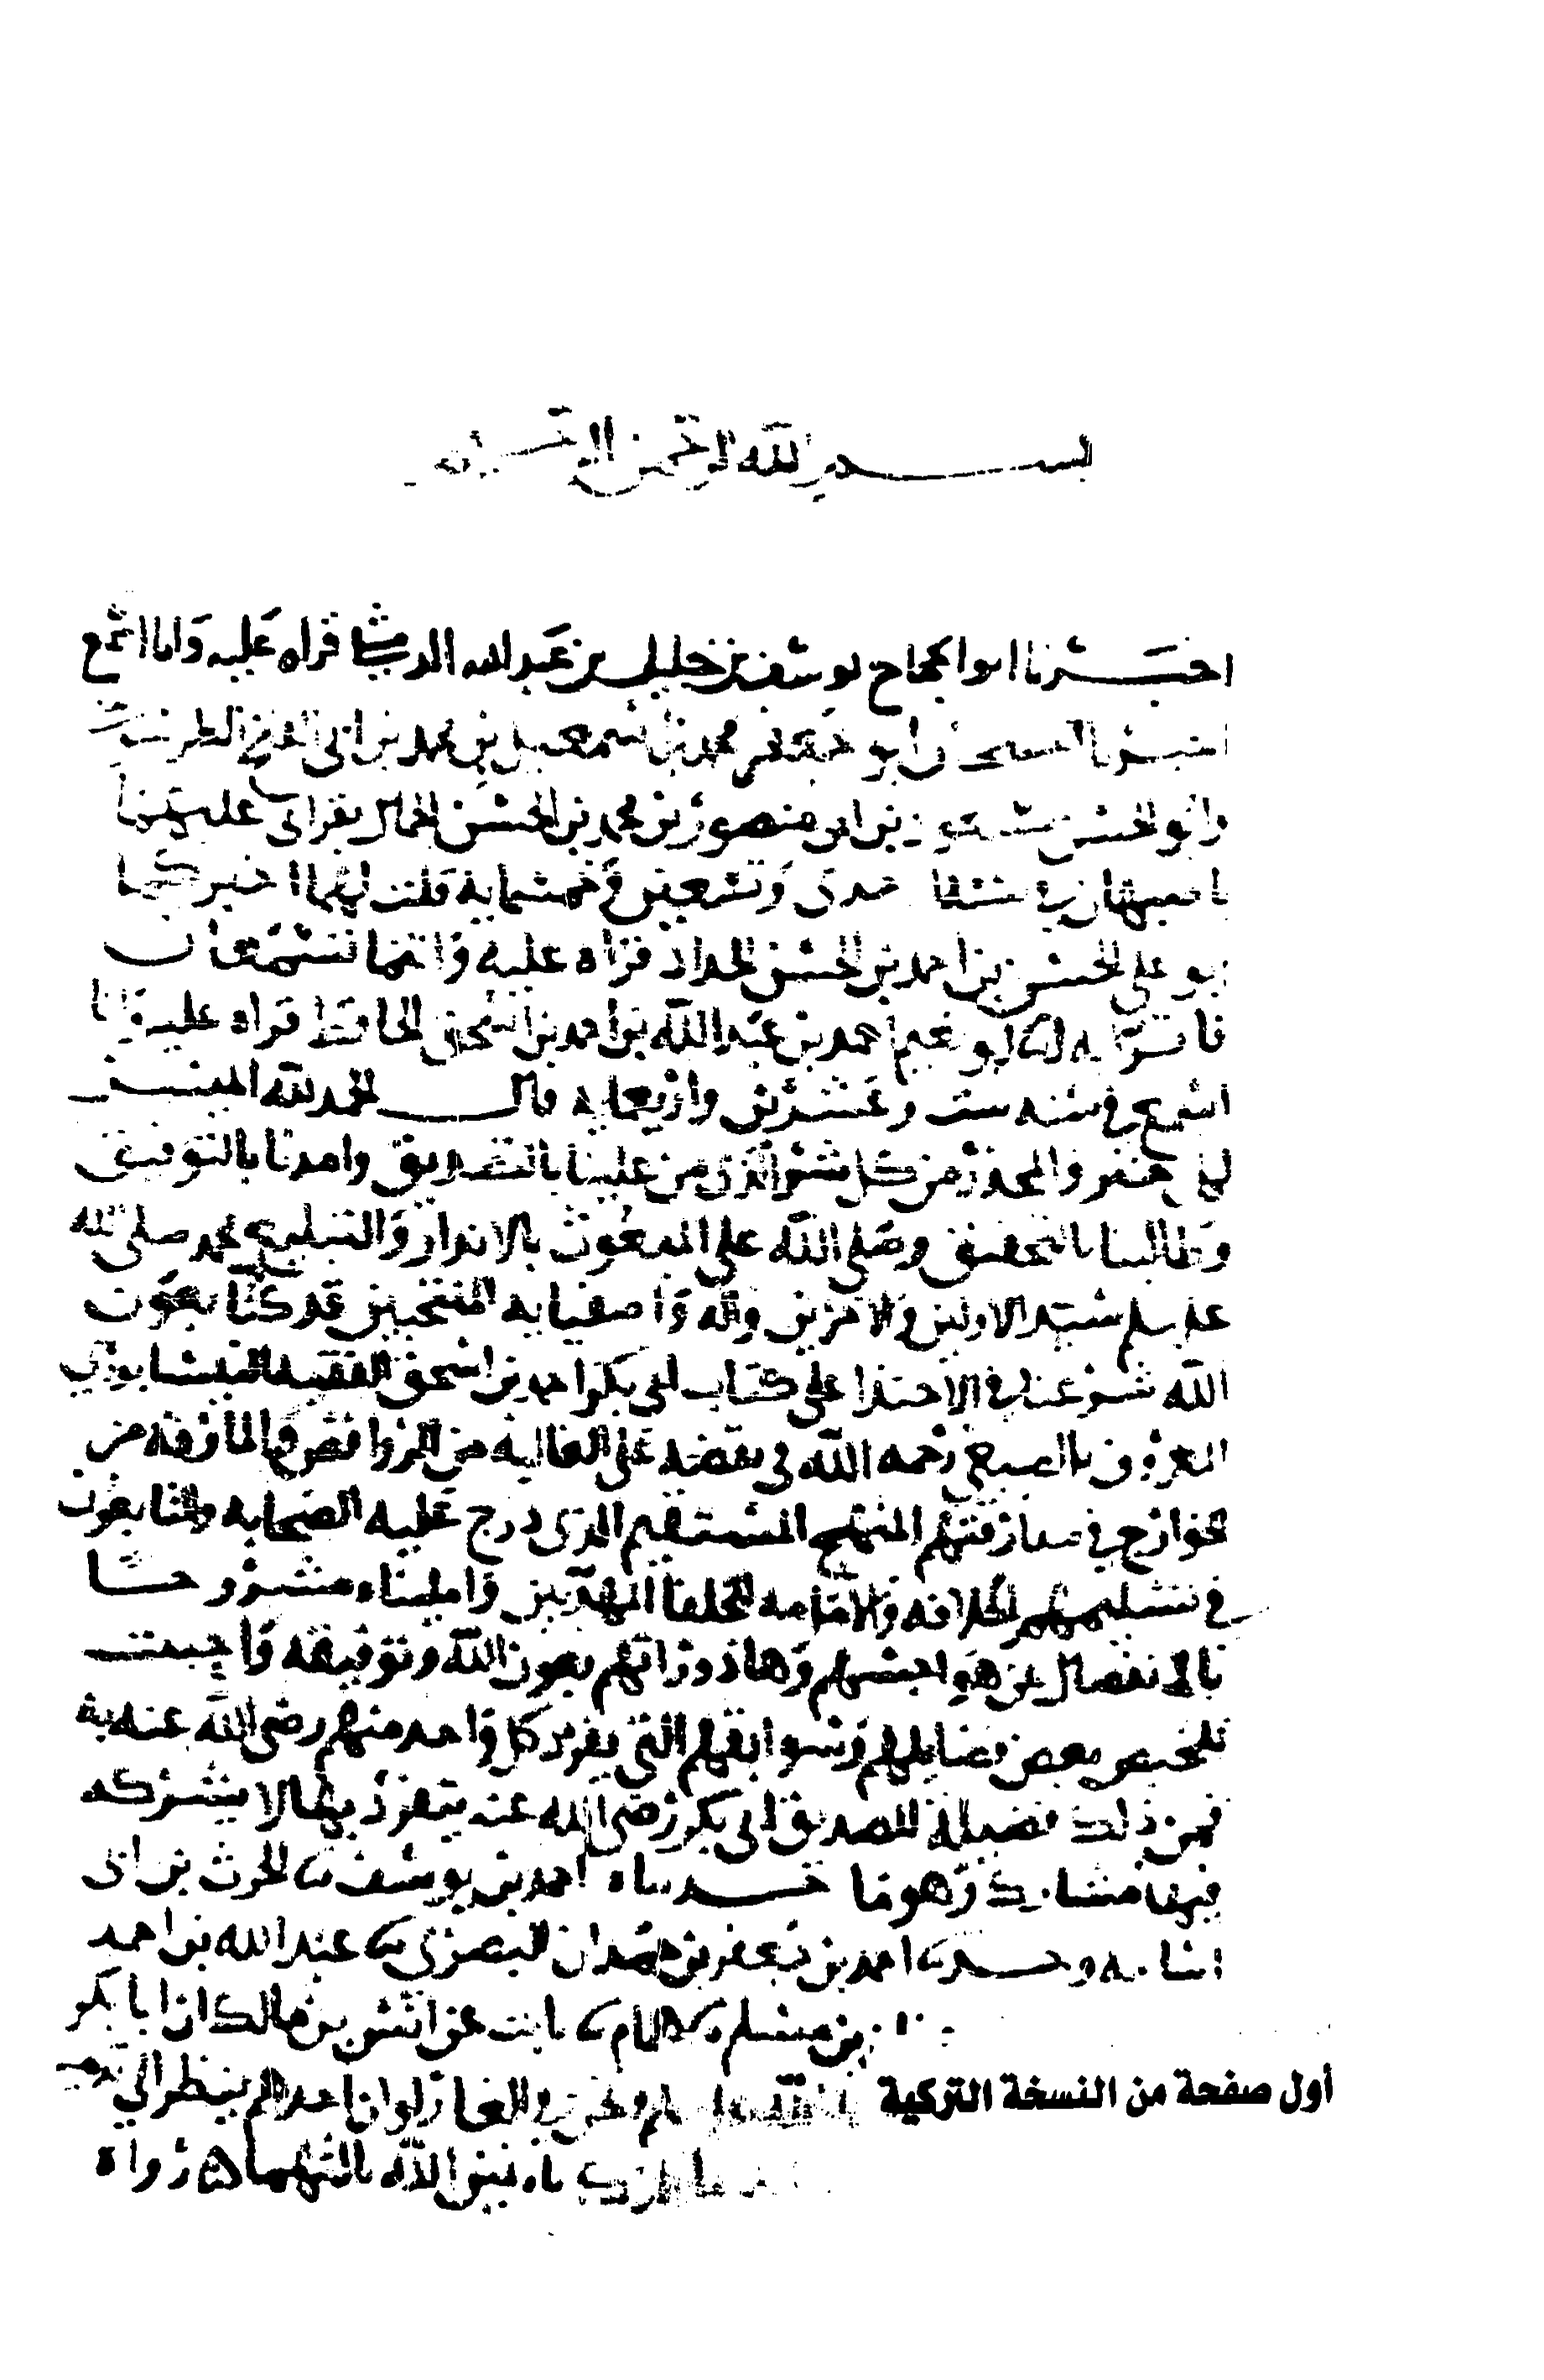 بسم الله الرحمن الرحيم
اخبرنا ابوا الحجاج يوسف بن خليل بن عبد الله الدمشقي قراه عليه وانا اسمع
اخبرنا الشيخان ابو جعفر محمد بن اسمعيل بن محمد بن ابي الفتح الطرسوسي
وابو الحسن مسعود بن ابي منصور بن محمد بن الحسن الجمال بقراتي عليهما
باصبهان في سنة احدى وتسعين وخمسمايه قلت لهما اخبركما
ابو علي الحسن بن احمد بن الحسن الحداد قراه عليه وانتما تسمعان
فاقرا به ابو نعيم احمد بن عبد الله بن احمد بن اسحق الحافظ قراه عليه وانا
اسمع في سنه ست وعشرين واربعمايه قال الحمد لله
والمحذر من كل شر الذي من علينا بالتصديق وامدنا بالتوفيق
وطالبنا بالتحقيق وصلى الله على المبعوث بالانذار والتبليغ محمد صلى الله
عليه وسلم سيد الاولين والاخرين واله واصفيايه المنتخبين قد كنا بعون
الله شرعنا في الاحتذا على كتاب ابي بكر احمد بن اسحق الفقيه النيسابوري
المعروف بالصبغي رحمه الله في نقضه على الغاليه من الروافض والمارقة من
الخوارج في مفارقتهم المنهج المستقيم الذي درج عليه الصحابه والتابعون
في تسليمهم الخلافه والامامه للخلفا المهديين وامليناه مشروحا
بالانفصال عن هواجسهم وهاذوراتهم بعون الله وتوفيقه واحببت
تلخيص بعض فضايلهم وسوابقهم التي يفرد كل واحد منهم رضي الله عنه به
فمن ذلك فضيلة للصديق ابي بكر رضي الله عنه يتفرد بها لا يشركه
فيها مشارك وهو ما حدثناه احمد بن يوسف ثنا الحرث بن ابي
اسامه وحدثنا احمد بن جعفر بن حمدان البصري ثنا عبد الله بن احمد
بن مسلم ثنا همام ثنا ثابت عن انس بن مالك ان ابا بكر
ونحن في الغار لو ان احدهم ينظر الى
باثنين الله ثالثهما رواه
أول صفحة من النسخة التركية